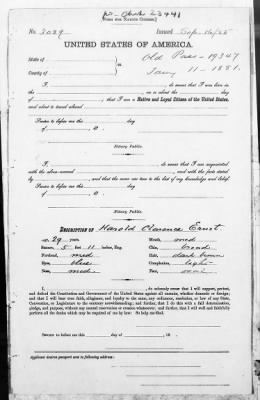 [FORM FOR NATIVE CITIZEN.]
No. 3029 Issued
UNITED STATES OF AMERICA.
State of Old Pass - 19347
County of Jany 11 - 1881.
I, do swear that I was born in
on or about the day of
, that I am a Native and Loyal Citizen of the United States,
and about to travel abroad
Sworn to before me this day of
, 18 .
Notary Public.
I, do swear that I am acquainted
with the above-named , and with the facts stated
by and that the same are true to the best of my knowledge and belief
Sworn to before me this day of
, 18 .
Notary Public.
DESCRIPTION OF Harold Clarence Ernst.
Age, 29 years. Mouth, med
Stature, 5 feet 11 inches, Eng. Chin, broad
Forehead, med Hair, dark brown
Eyes, blue Complexion, light
Nose, med Face, oval
I, , do solemnly swear that I will support, protect,
and defend the Constitution and Government of the United States against all enemies, whether domestic or foreign;
and that I will bear true faith, allegiance, and loyalty to the same, any ordinance, resolution, or law of any State,
Convention, or Legislature to the contrary notwithstanding; and further, that I do this with a full determination,
pledge, and purpose, without any mental reservation or evasion whatsoever; and further, that I will well and faithfully
perform all the duties which may be required of me by law: So help me God.
Sworn to before me this day of , 18 .
Applicant desires passport sent to following address: